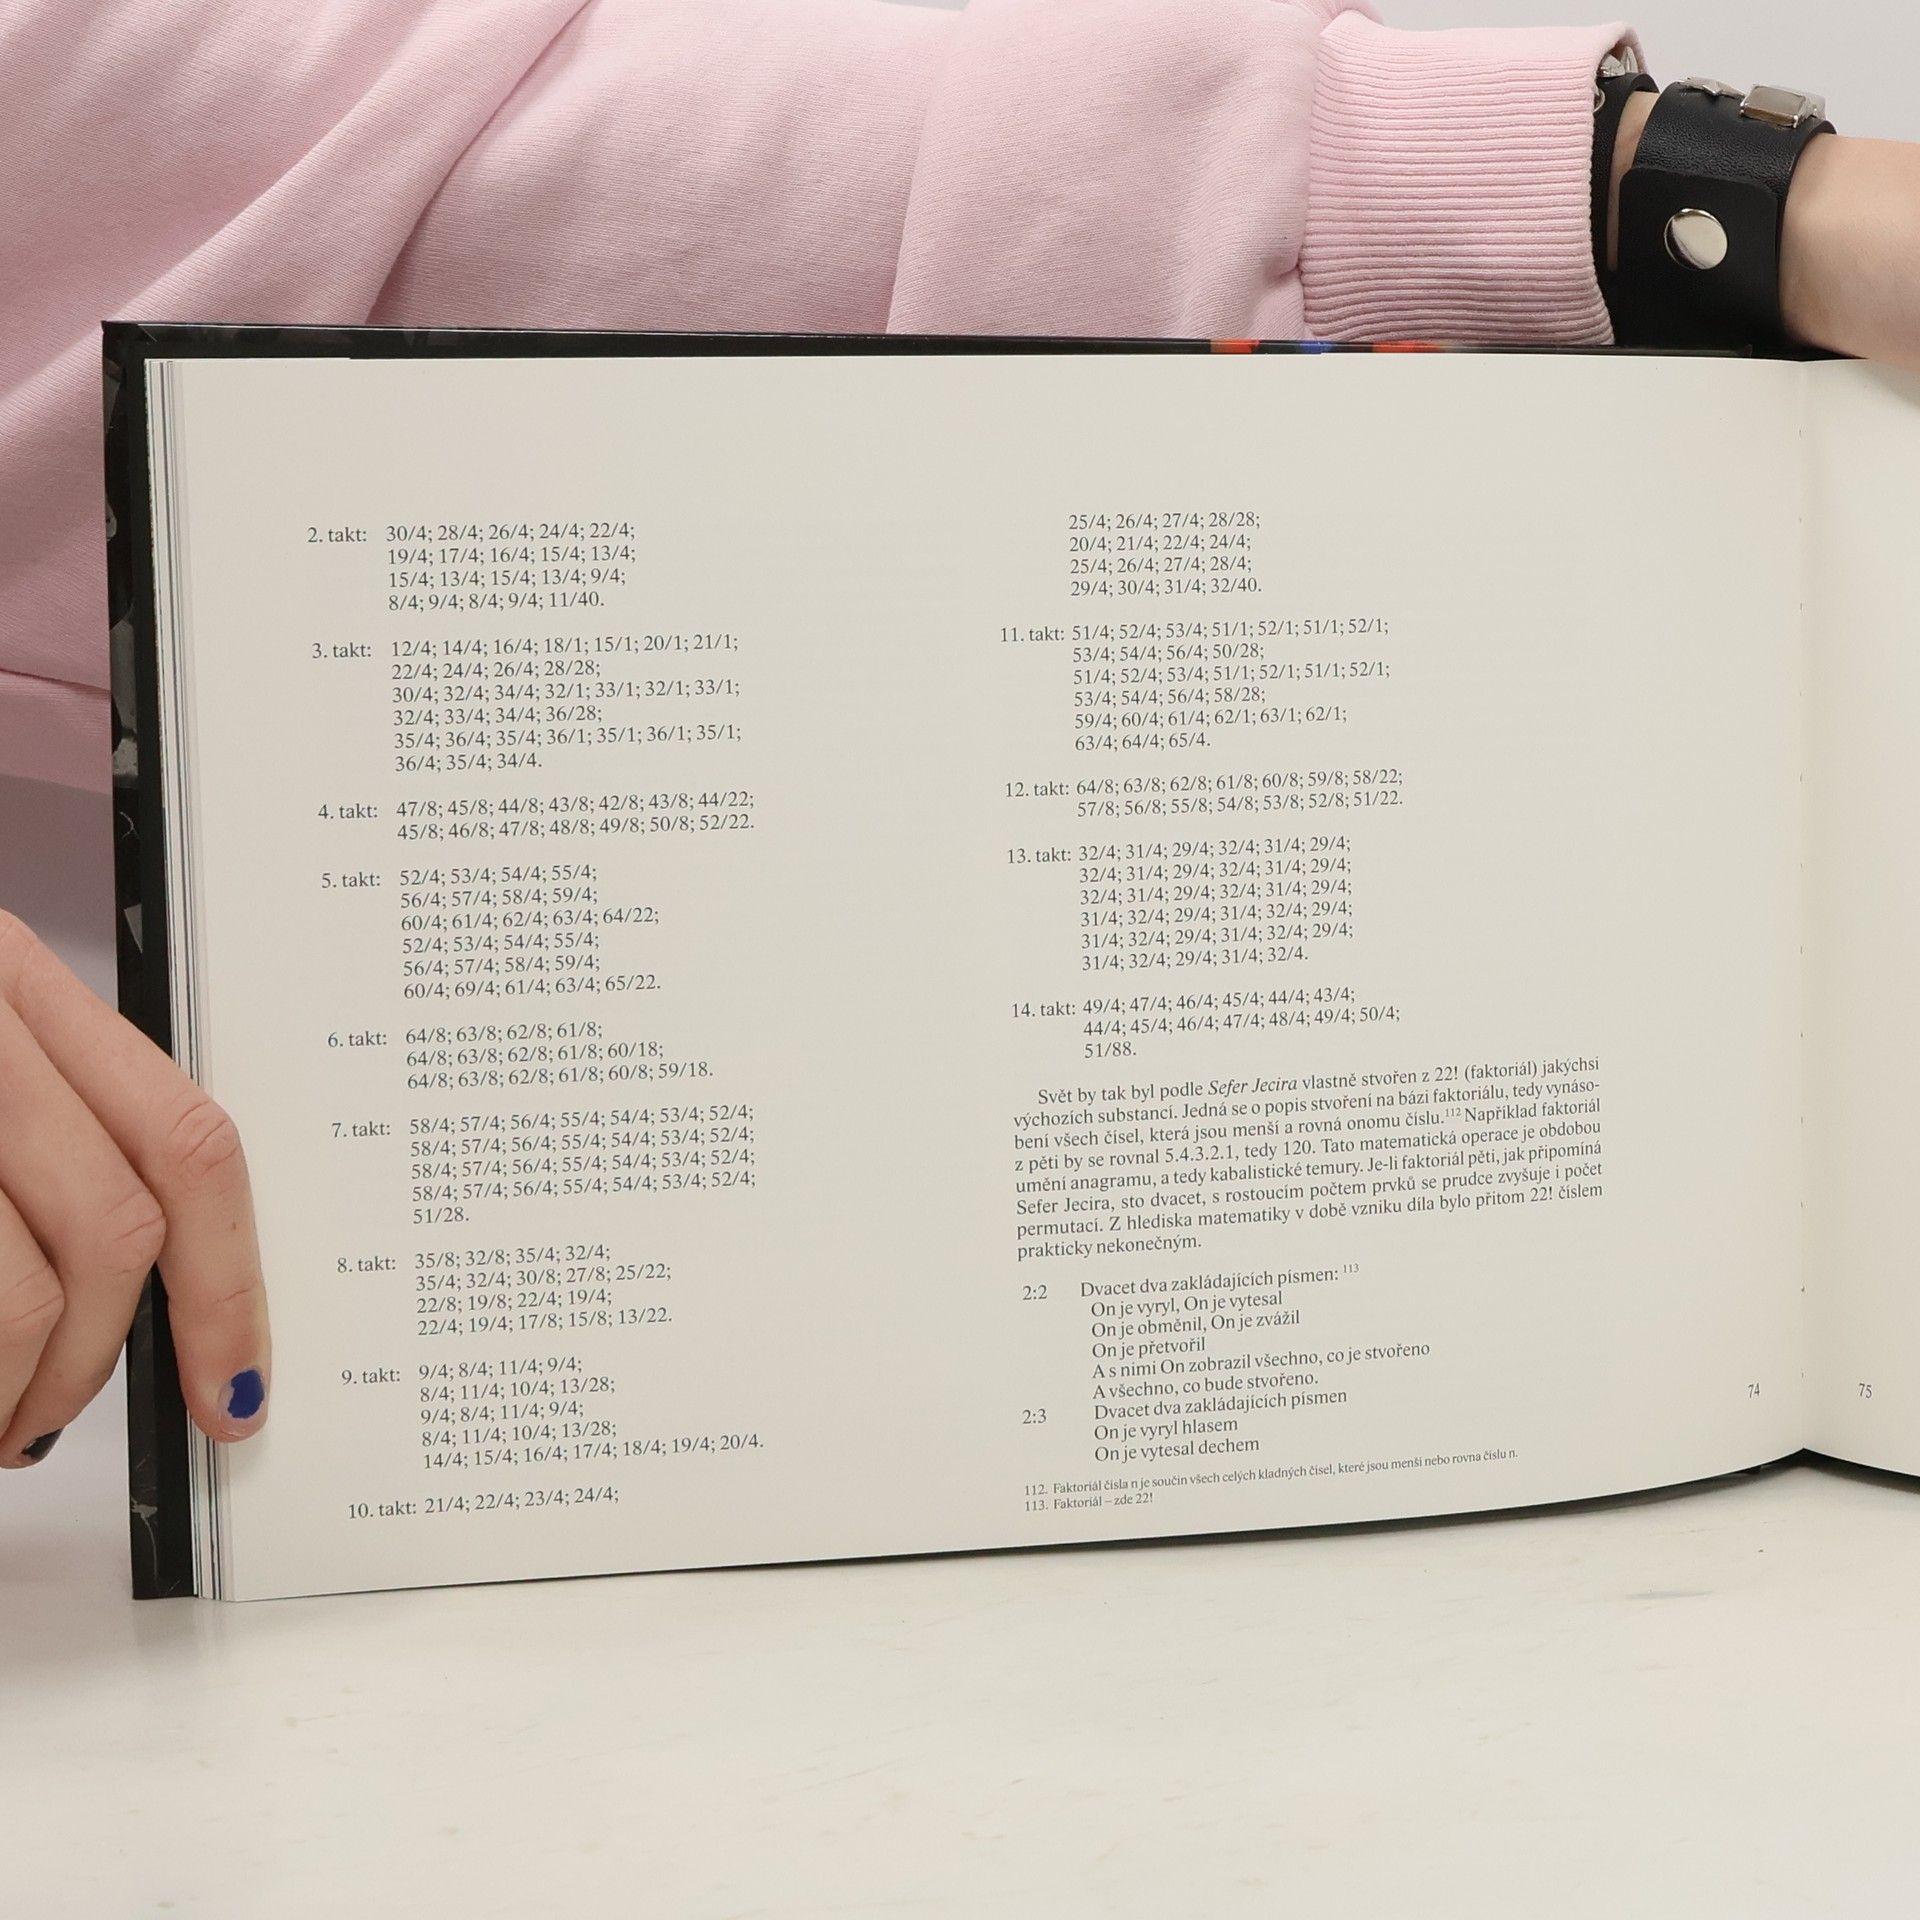 2. takt: 30/4; 28/4; 26/4; 24/4; 22/4;
19/4; 17/4; 16/4; 15/4; 13/4;
15/4; 13/4; 15/4; 13/4; 9/4;
8/4; 9/4; 8/4; 9/4; 11/40.
3. takt: 12/4; 14/4; 16/4; 18/1; 15/1; 20/1; 21/1;
22/4; 24/4; 26/4; 28/28;
30/4; 32/4; 34/4; 32/1; 33/1; 32/1; 33/1;
32/4; 33/4; 34/4; 36/28;
35/4; 36/4; 35/4; 36/1; 35/1; 36/1; 35/1;
36/4; 35/4; 34/4.
4. takt: 47/8; 45/8; 44/8; 43/8; 42/8; 43/8; 44/22;
45/8; 46/8; 47/8; 48/8; 49/8; 50/8; 52/22.
5. takt: 52/4; 53/4; 54/4; 55/4;
56/4; 57/4; 58/4; 59/4;
60/4; 61/4; 62/4; 63/4; 64/22;
52/4; 53/4; 54/4; 55/4;
56/4; 57/4; 58/4; 59/4;
60/4; 69/4; 61/4; 63/4; 65/22.
6. takt: 64/8; 63/8; 62/8; 61/8;
64/8; 63/8; 62/8; 61/8; 60/18;
64/8; 63/8; 62/8; 61/8; 60/8; 59/18.
7. takt: 58/4; 57/4; 56/4; 55/4; 54/4; 53/4; 52/4;
58/4; 57/4; 56/4; 55/4; 54/4; 53/4; 52/4;
58/4; 57/4; 56/4; 55/4; 54/4; 53/4; 52/4;
58/4; 57/4; 56/4; 55/4; 54/4; 53/4; 52/4;
51/28.
8. takt: 35/8; 32/8; 35/4; 32/4;
35/4; 32/4; 30/8; 27/8; 25/22;
22/8; 19/8; 22/4; 19/4;
22/4; 19/4; 17/8; 15/8; 13/22.
9. takt: 9/4; 8/4; 11/4; 9/4;
8/4; 11/4; 10/4; 13/28;
9/4; 8/4; 11/4; 9/4;
8/4; 11/4; 10/4; 13/28;
14/4; 15/4; 16/4; 17/4; 18/4; 19/4; 20/4.
10. takt: 21/4; 22/4; 23/4; 24/4;
25/4; 26/4; 27/4; 28/28;
20/4; 21/4; 22/4; 24/4;
25/4; 26/4; 27/4; 28/4;
29/4; 30/4; 31/4; 32/40.
11. takt: 51/4; 52/4; 53/4; 51/1; 52/1; 51/1; 52/1;
53/4; 54/4; 56/4; 50/28;
51/4; 52/4; 53/4; 51/1; 52/1; 51/1; 52/1;
53/4; 54/4; 56/4; 58/28;
59/4; 60/4; 61/4; 62/1; 63/1; 62/1;
63/4; 64/4; 65/4.
12. takt: 64/8; 63/8; 62/8; 61/8; 60/8; 59/8; 58/22;
57/8; 56/8; 55/8; 54/8; 53/8; 52/8; 51/22.
13. takt: 32/4; 31/4; 29/4; 32/4; 31/4; 29/4;
32/4; 31/4; 29/4; 32/4; 31/4; 29/4;
32/4; 31/4; 29/4; 32/4; 31/4; 29/4;
31/4; 32/4; 29/4; 31/4; 32/4; 29/4;
31/4; 32/4; 29/4; 31/4; 32/4; 29/4;
31/4; 32/4; 29/4; 31/4; 32/4.
14. takt: 49/4; 47/4; 46/4; 45/4; 44/4; 43/4;
44/4; 45/4; 46/4; 47/4; 48/4; 49/4; 50/4;
51/88.
Svět by tak byl podle Sefer Jecira vlastně stvořen z 22! (faktoriál) jakýchsi
výchozích substancí. Jedná se o popis stvoření na bázi faktoriálu, tedy vynáso-
bení všech čísel, která jsou menší a rovná onomu číslu.112 Například faktoriál
z pěti by se rovnal 5.4.3.2.1, tedy 120. Tato matematická operace je obdobou
umění anagramu, a tedy kabalistické temury. Je-li faktoriál pěti, jak připomíná
Sefer Jecira, sto dvacet, s rostoucím počtem prvků se prudce zvyšuje i počet
permutací. Z hlediska matematiky v době vzniku díla bylo přitom 22! číslem
prakticky nekonečným.
2:2 Dvacet dva zakládajících písmen: 113
On je vyryl, On je vytesal
On je obměnil, On je zvážil
On je přetvořil
A s nimi On zobrazil všechno, co je stvořeno
A všechno, co bude stvořeno.
2:3 Dvacet dva zakládajících písmen
On je vyryl hlasem
On je vytesal dechem
112. Faktoriál čísla n je součin všech celých kladných čísel, které jsou menší nebo rovna číslu n.
113. Faktoriál – zde 22!
74
75